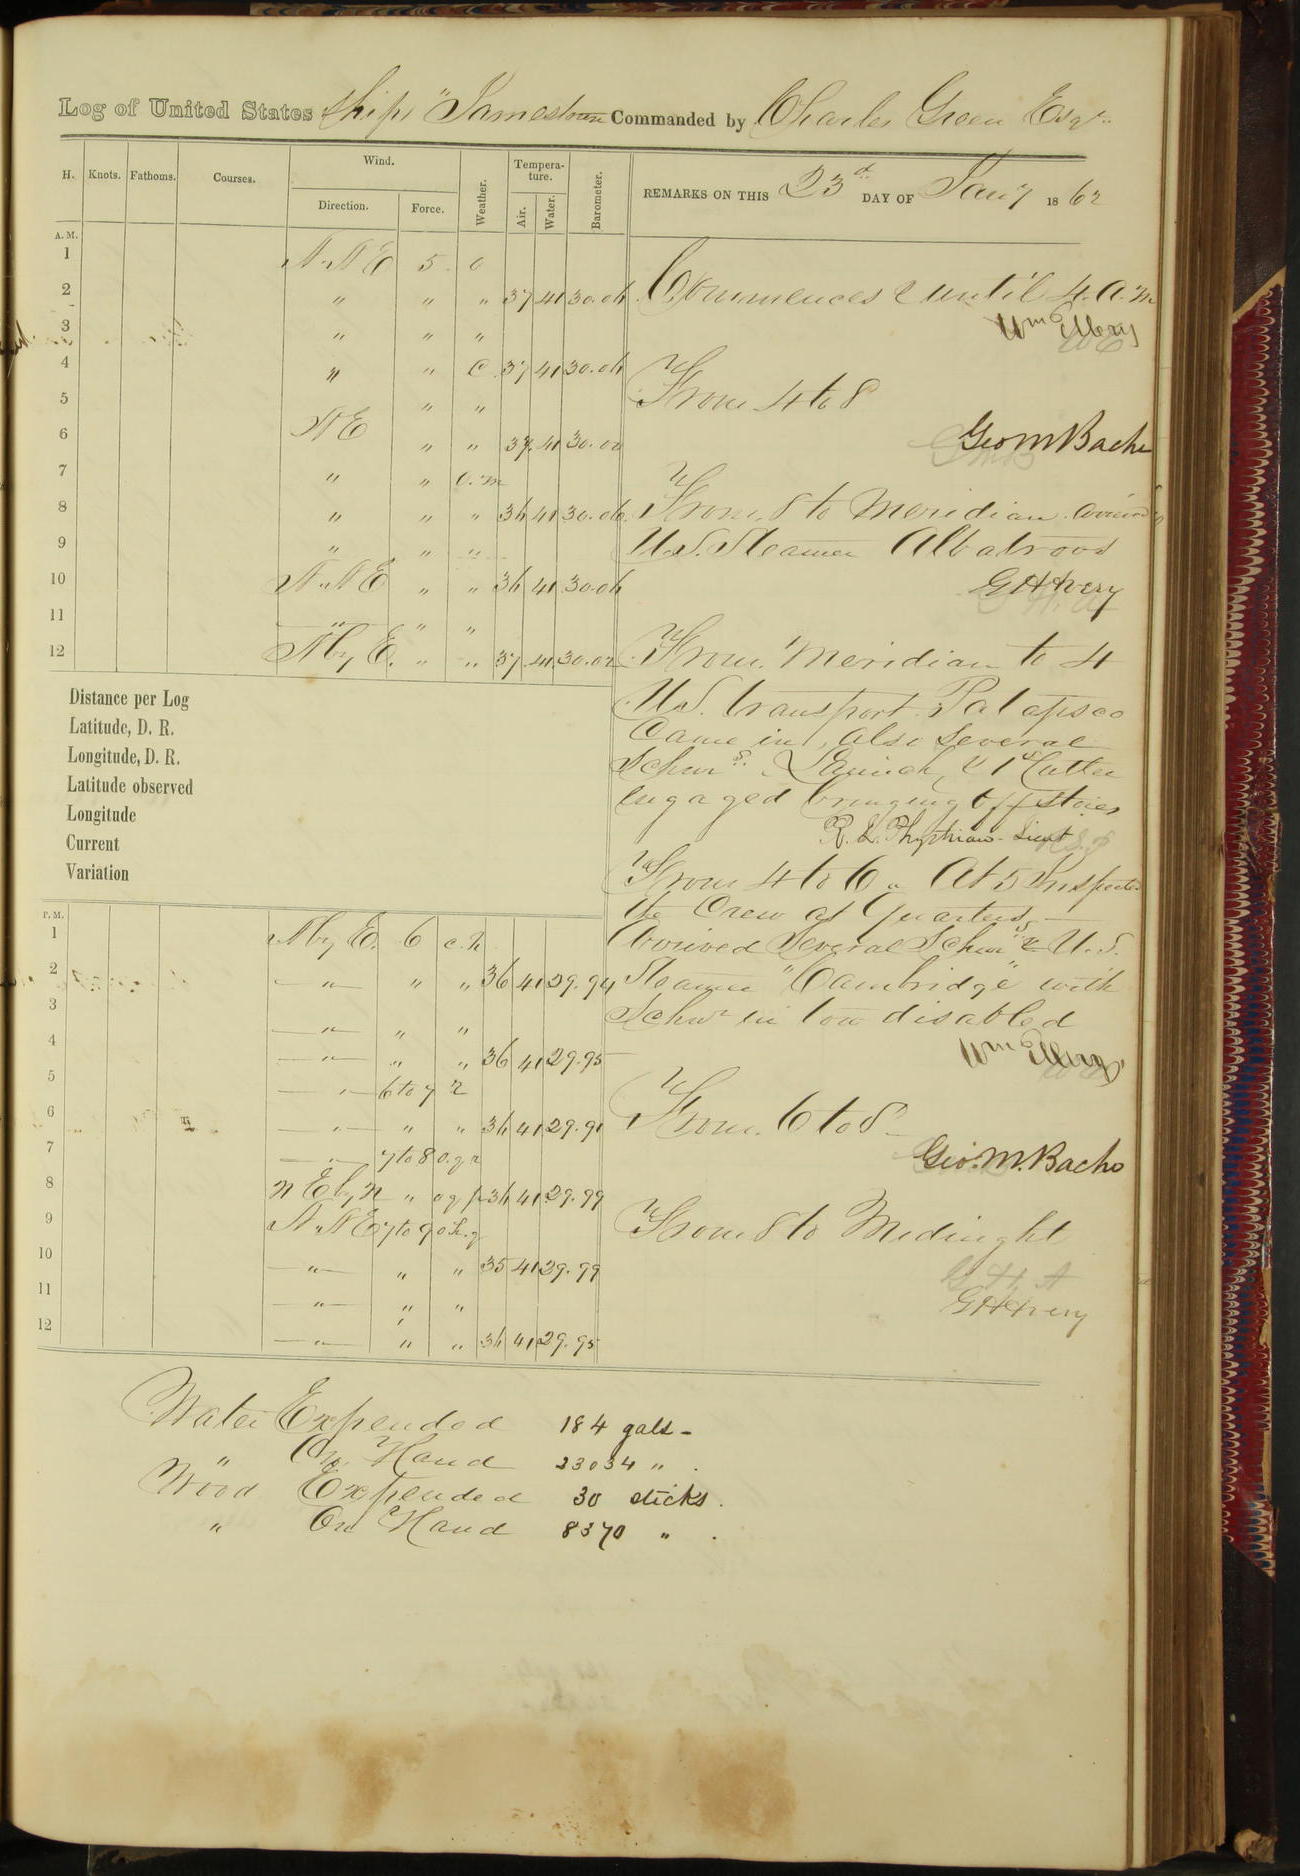 Log of United States Ship "Jamestown Commanded by Charles Green Esqr.
H. Knots. Fathoms. Courses. Wind. Direction. Force. Weather. Temperature. Air. Water. Barometer. REMARKS ON THIS 23d DAY OF Jany 1862
A. M.
1 N.N E 5 o
2 " " " 37 41 30.04 Commences & until 4. A. m
3 " " " Wm Ellery
4 " " C 37 41 30.04
5 " " From 4 to 8
6 N E " " 37. 41 30.02 Geo M Bache
7 " " o.m
8 " " " 34 41 30.06 From. 8 to Meridian. arrived
9 " " " U.S. Steamer Albatross
10 N.N E " " 34 41 30.04 G H Avery
11 " " "
12 N by E. " " 37 41 30.02 From. Meridian to 4
Distance per Log
Latitude, D. R.
Longitude, D. R.
Latitude observed
Longitude
Current
Variation
U.S. transport Patapsco
Came in, also Several
Schnrs. Launch, & 1st Cutter
engaged bringing off stores
R. L. Phythian. Lieut
From 4 to 6 " At 5 Inspected
the Crew at Quarters,
Arrived Several Schnrs & U.S.
Steamer "Cambridge" with
Schnr in tow disabled
Wm Ellery
From. 6 to 8
Geo. M. Bache
From 8 to Midnight
G. H. A
G H Avery
P. M.
1 N by E. 6 c.r
2 " " " 36 41 29.94
3 " " "
4 " " " 36 41 29.95
5 " 6 to 7 r
6 " " " 34 41 29.91
7 " 7 to 8 o.q r
8 N E by N " o q p 34 41 29.99
9 N.N E 7 to 9 o.r.q
10 " " " 35 41 29.99
11 " " "
12 " " " 34 41 29.95
Water Expended 184 galls -
" On Hand 23034 " .
Wood Expended 30 sticks .
" On Hand 8370 " .